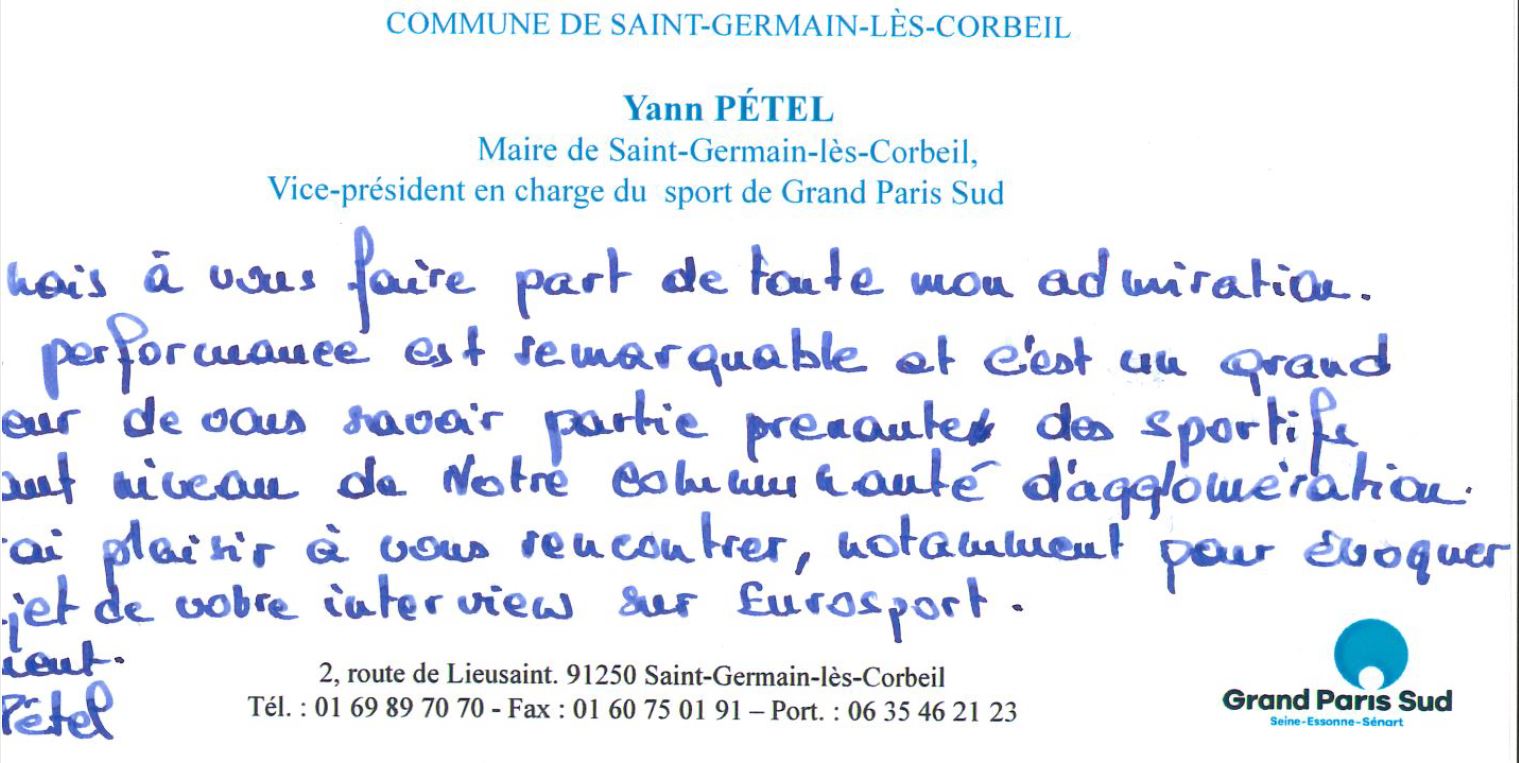 COMMUNE DE SAINT-GERMAIN-LÈS-CORBEIL
Yann PÉTEL
Maire de Saint-Germain-lès-Corbeil,
Vice-président en charge du sport de Grand Paris Sud
nais à vous faire part de toute mon admiration.
performance est remarquable et c'est un grand
eur de vous savoir partie prenante des sportifs
aut niveau de Notre communauté d'agglomération.
ai plaisir à vous rencontrer, notamment pour évoquer
jet de votre interview sur Eurosport.
ient.
Pétel
2, route de Lieusaint. 91250 Saint-Germain-lès-Corbeil
Tél. : 01 69 89 70 70 - Fax : 01 60 75 01 91 – Port. : 06 35 46 21 23
Grand Paris Sud
Seine-Essonne-Sénart